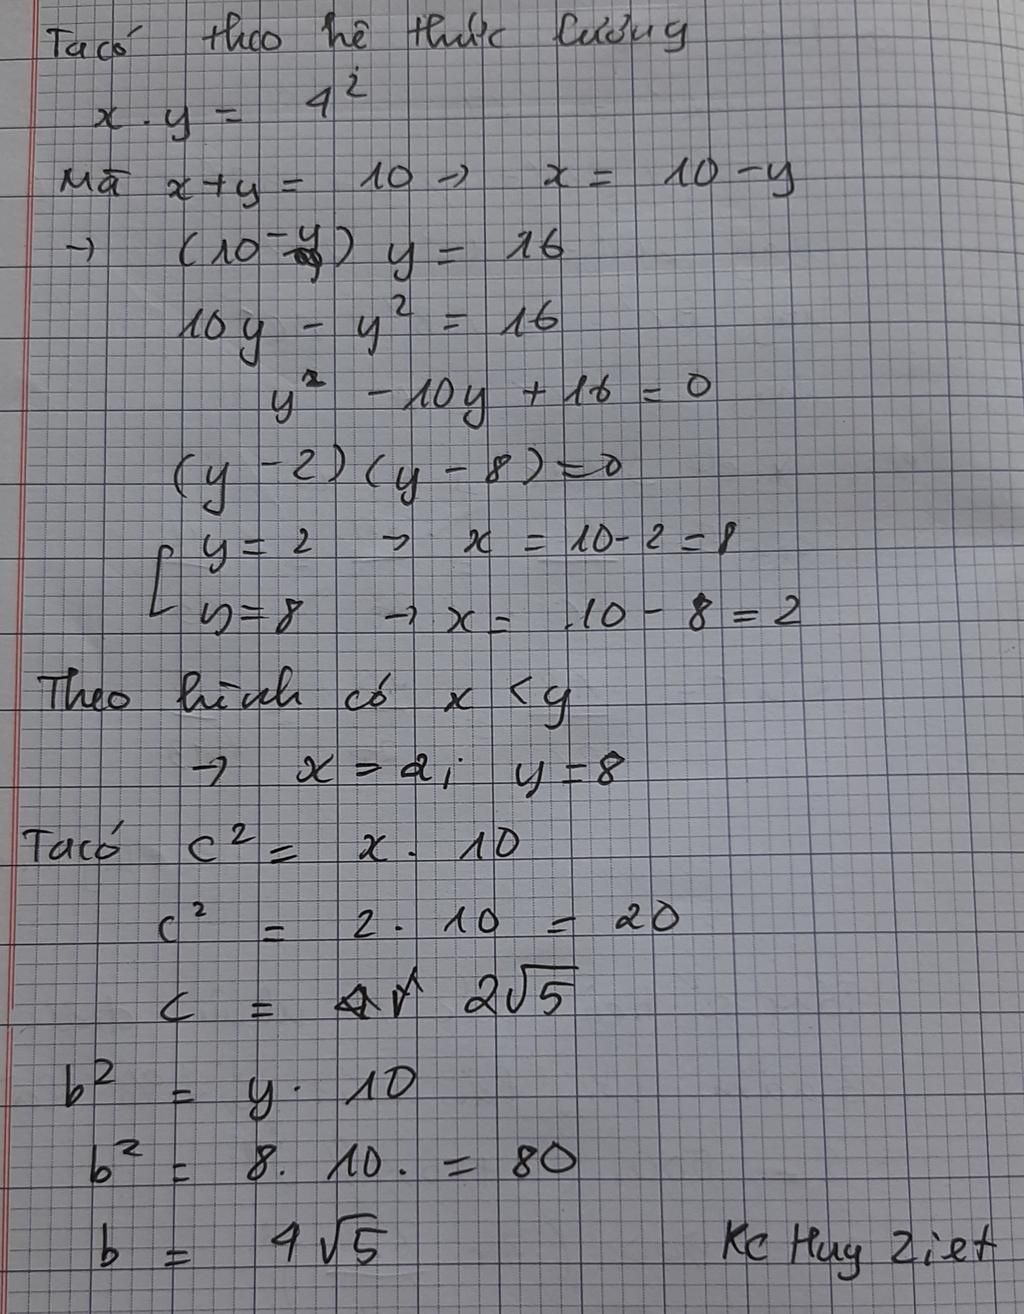 Ta có theo hệ thức lượng
x . y = 4²
Mà x + y = 10 → x = 10 - y
→ (10 - y) y = 16
10y - y² = 16
y² - 10y + 16 = 0
(y - 2) (y - 8) = 0
[ y = 2 → x = 10 - 2 = 8
y = 8 → x = 10 - 8 = 2
Theo hình có x < y
→ x = 2; y = 8
Ta có c² = x . 10
c² = 2 . 10 = 20
c = 2√5
b² = y . 10
b² = 8 . 10 . = 80
b = 4√5
Kc Huy Ziet